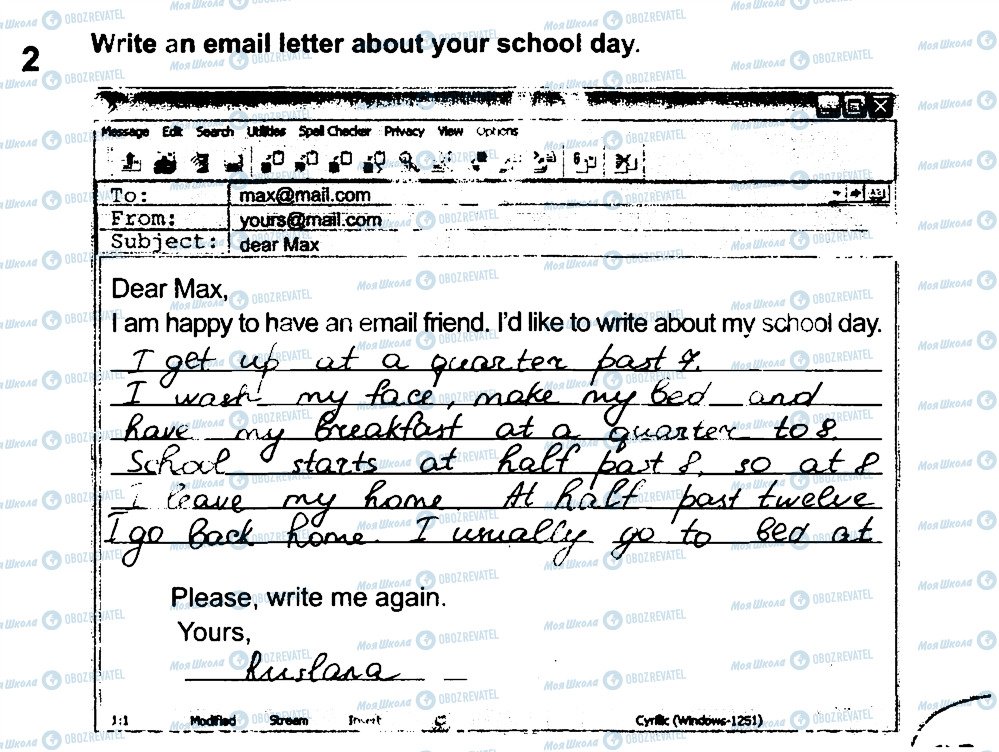 2 Write an email letter about your school day.
Message Edit Search Utilities Spell Checker Privacy View Options
To: max@mail.com
From: yours@mail.com
Subject: dear Max
Dear Max,
I am happy to have an email friend. I'd like to write about my school day.
I get up at a quarter past 7.
I wash my face, make my bed and
have my breakfast at a quarter to 8.
School starts at half past 8, so at 8
I leave my home. At half past twelve
I go back home. I usually go to bed at
Please, write me again.
Yours,
Ruslana
1:1 Modified Stream Insert Cyrillic (Windows-1251)
МояШкола OBOZREVATEL